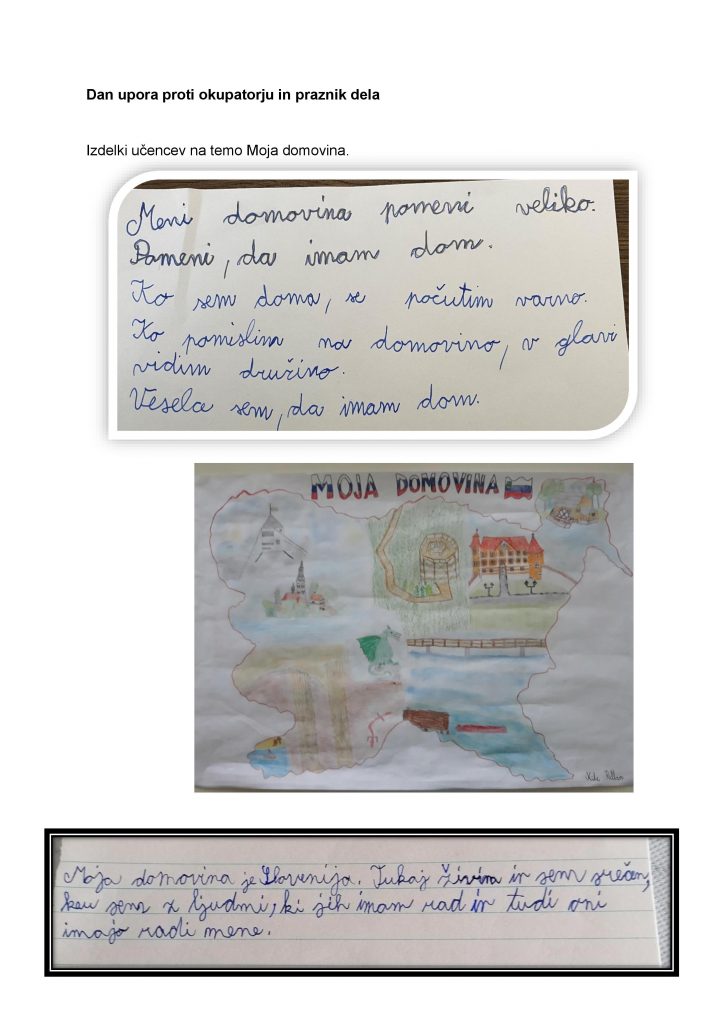 Dan upora proti okupatorju in praznik dela
Izdelki učencev na temo Moja domovina.
Meni domovina pomeni veliko.
Pomeni, da imam dom.
Ko sem doma, se počutim varno.
Ko pomislim na domovino, v glavi
vidim družino.
Vesela sem, da imam dom.
MOJA DOMOVINA
Moja domovina je Slovenija. Tukaj živim in sem srečen,
ker sem z ljudmi, ki jih imam rad in tudi oni
imajo radi mene.